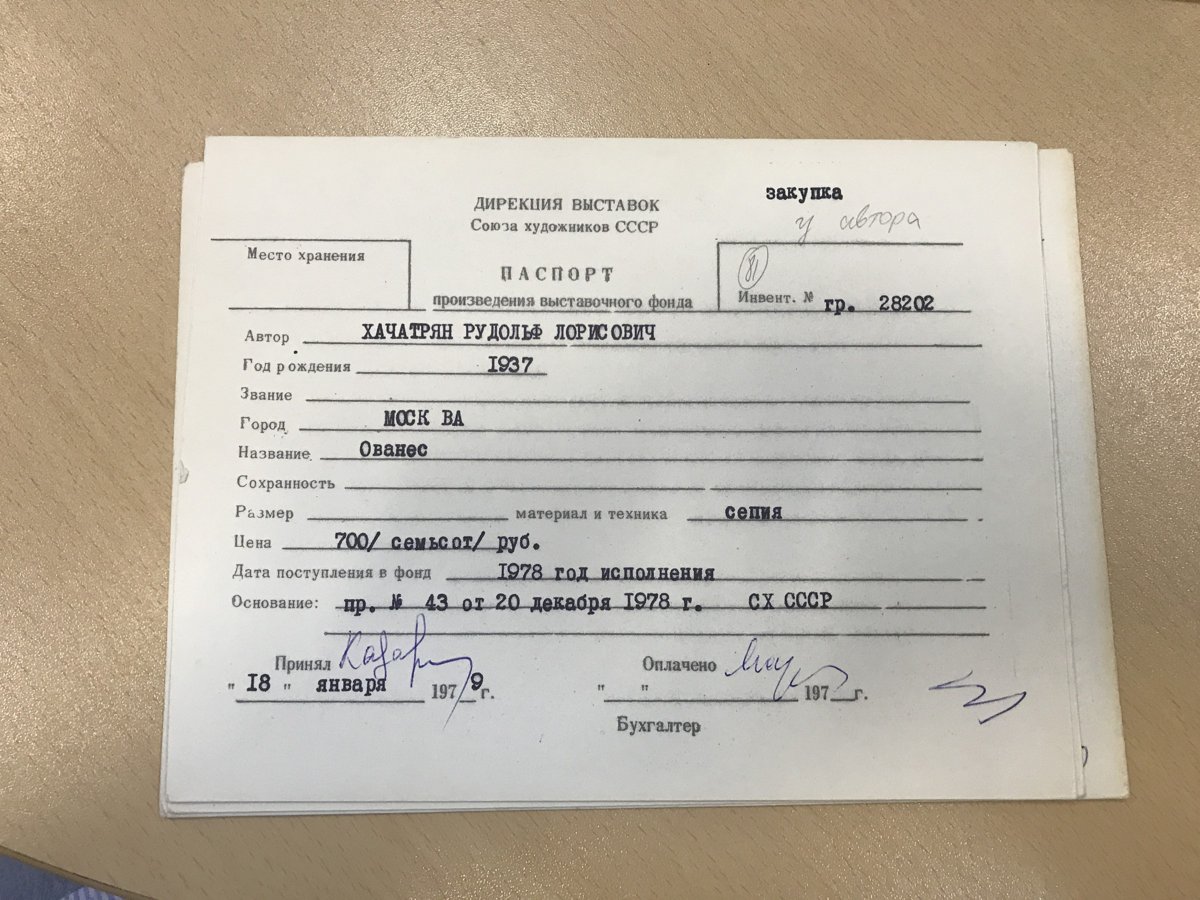 закупка
у автора
ДИРЕКЦИЯ ВЫСТАВОК
Союза художников СССР
Место хранения
ПАСПОРТ
произведения выставочного фонда
81
Инвент. № гр. 28202
Автор ХАЧАТРЯН РУДОЛЬФ ЛОРИСОВИЧ
Год рождения 1937
Звание
Город МОСК ВА
Название Ованес
Сохранность
Размер материал и техника сепия
Цена 700/ семьсот/ руб.
Дата поступления в фонд 1978 год исполнения
Основание: пр. № 43 от 20 декабря 1978 г. СХ СССР
Принял Оплачено
" 18 " января 1979 г. " " 197 г.
Бухгалтер